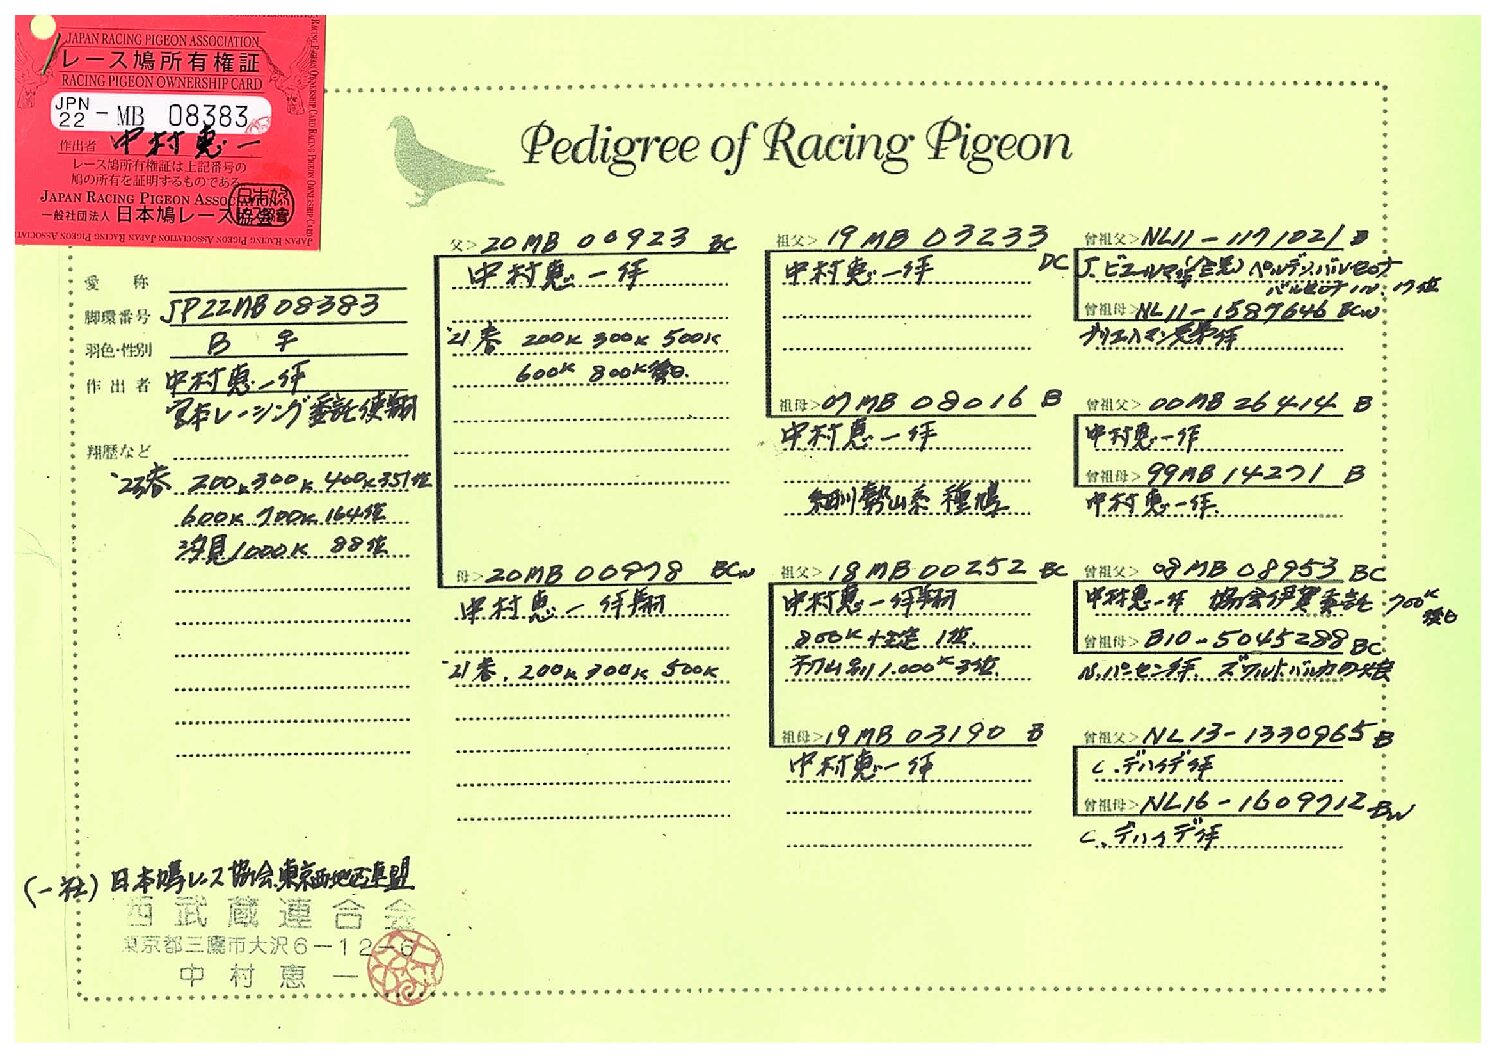 JAPAN RACING PIGEON ASSOCIATION
レース鳩所有権証
RACING PIGEON OWNERSHIP CARD
JPN
22 - MB 08383
作出者 中村惠一
レース鳩所有権証は上記番号の
鳩の所有を証明するものである
JAPAN RACING PIGEON ASSOCIATION
一般社団法人 日本鳩レース協会
Pedigree of Racing Pigeon
愛称
脚環番号 JP22MB08383
羽色・性別 B ♀
作出者 中村惠一作
レーシング委託使翔
翔歴など
'23春 200K 300K 400K 357位
600K 700K 164位
汐見1000K 88位
父> 20MB 00923 BC
中村惠一作
'21春 200K 300K 500K
600K 800K後日
母> 20MB 00978 BCW
中村惠一作翔
'21春. 200K 300K 500K
祖父> 19MB 03233
DC
中村惠一作
祖母> 07MB 08016 B
中村惠一作
勢山系 種鳩
祖父> 18MB 00252 BC
中村惠一作翔
800K 1位
1.000K 3位
祖母> 19MB 03190 B
中村惠一作
曾祖父> NL11-1171021 B
バルセロナ IN. 17位
曾祖母> NL11-1587646 BCW
曾祖父> 00MB 26414 B
中村惠一作
曾祖母> 99MB 14271 B
中村惠一作
曾祖父> 08MB 08953 BC
中村惠一作 協会伊賀委託 700K
後日
曾祖母> B10-5045288 BC
曾祖父> NL13-1330965 B
C.デハイデ作
曾祖母> NL16-1609712 BW
C.デハイデ作
(一社)日本鳩レース協会東京西地区連盟
西武蔵連合会
東京都三鷹市大沢6-12-6
中村恵一